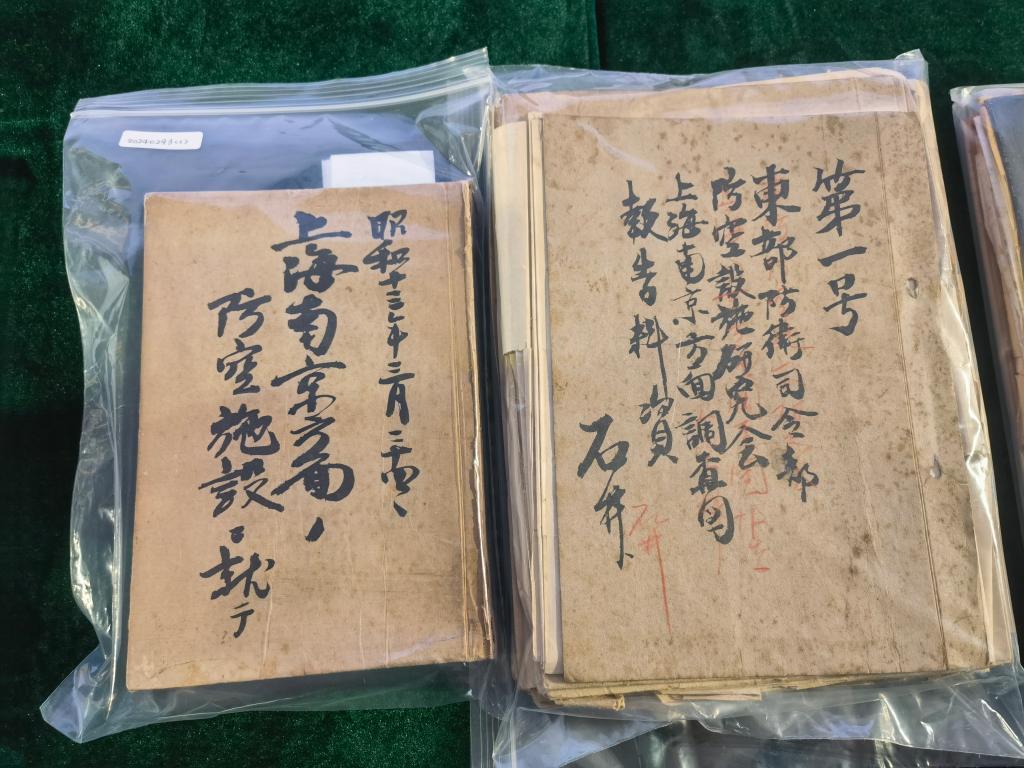 昭和十三年三月二十四
上海南京方面ノ
防空施設ニ就テ
第一号
東部防衛司令部
防空設施研究会
上海南京方面調査団
報告料資
石井
石井